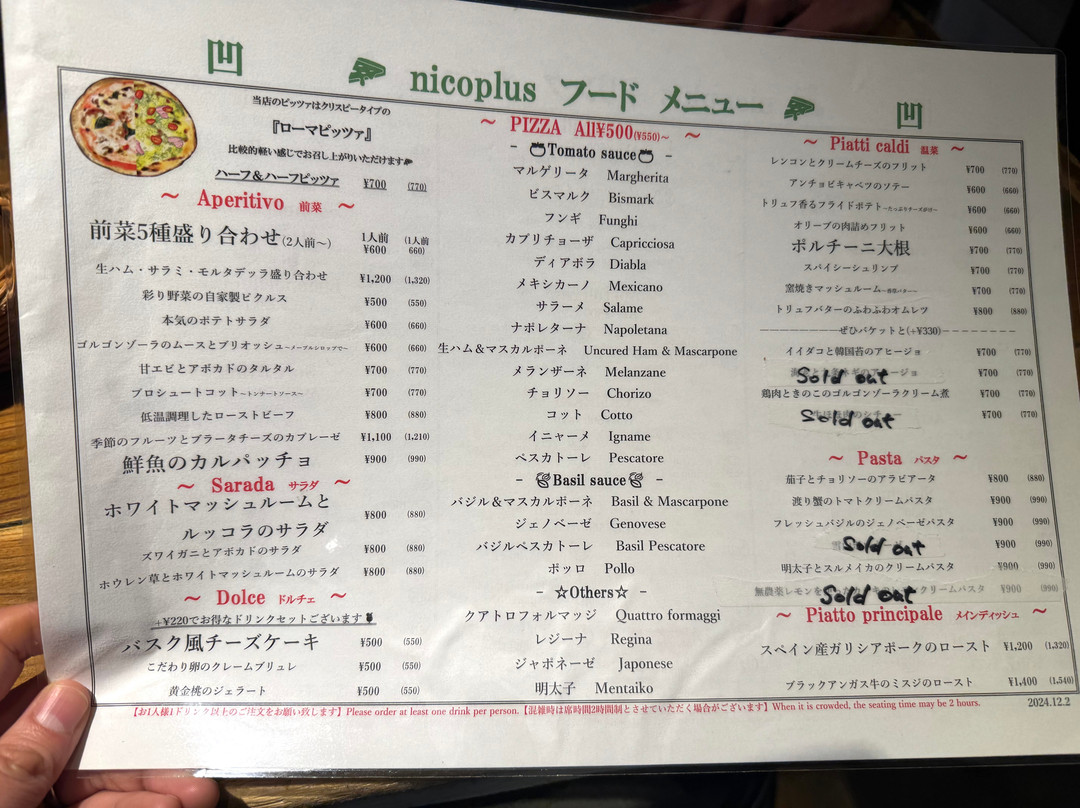 nicoplus フード メニュー
当店のピッツァはクリスピータイプの
『ローマピッツァ』
比較的軽い感じでお召し上がりいただけます
ハーフ＆ハーフピッツァ ¥700 (770)
～ Aperitivo 前菜 ～
前菜5種盛り合わせ(2人前～) 1人前 ¥600 (1人前 660)
生ハム・サラミ・モルタデッラ盛り合わせ ¥1,200 (1,320)
彩り野菜の自家製ピクルス ¥500 (550)
本気のポテトサラダ ¥600 (660)
ゴルゴンゾーラのムースとブリオッシュ～メープルシロップで～ ¥600 (660)
甘エビとアボカドのタルタル ¥700 (770)
プロシュートコット～トンナートソース～ ¥700 (770)
低温調理したローストビーフ ¥800 (880)
季節のフルーツとブラータチーズのカプレーゼ ¥1,100 (1,210)
鮮魚のカルパッチョ ¥900 (990)
～ Sarada サラダ ～
ホワイトマッシュルームと
ルッコラのサラダ ¥800 (880)
ズワイガニとアボカドのサラダ ¥800 (880)
ホウレン草とホワイトマッシュルームのサラダ ¥800 (880)
～ Dolce ドルチェ ～
+¥220でお得なドリンクセットございます
バスク風チーズケーキ ¥500 (550)
こだわり卵のクレームブリュレ ¥500 (550)
黄金桃のジェラート ¥500 (550)
～ PIZZA All¥500(¥550)～ ～
- Tomato sauce -
マルゲリータ Margherita
ビスマルク Bismark
フンギ Funghi
カプリチョーザ Capricciosa
ディアボラ Diabla
メキシカーノ Mexicano
サラーメ Salame
ナポレターナ Napoletana
生ハム＆マスカルポーネ Uncured Ham & Mascarpone
メランザーネ Melanzane
チョリソー Chorizo
コット Cotto
イニャーメ Igname
ペスカトーレ Pescatore
- Basil sauce -
バジル＆マスカルポーネ Basil & Mascarpone
ジェノベーゼ Genovese
バジルペスカトーレ Basil Pescatore
ポッロ Pollo
- ☆Others☆ -
クアトロフォルマッジ Quattro formaggi
レジーナ Regina
ジャポネーゼ Japonese
明太子 Mentaiko
～ Piatti caldi 温菜 ～
レンコンとクリームチーズのフリット ¥700 (770)
アンチョビキャベツのソテー ¥600 (660)
トリュフ香るフライドポテト～たっぷりチーズがけ～ ¥600 (660)
オリーブの肉詰めフリット ¥600 (660)
ポルチーニ大根 ¥700 (770)
スパイシーシュリンプ ¥700 (770)
窯焼きマッシュルーム ¥700 (770)
トリュフバターのふわふわオムレツ ¥800 (880)
----------ぜひバケットと(+¥330)----------
イイダコと韓国苔のアヒージョ ¥700 (770)
Sold out ¥700 (770)
鶏肉ときのこのゴルゴンゾーラクリーム煮 ¥700 (770)
Sold out ¥700 (770)
～ Pasta パスタ ～
茄子とチョリソーのアラビアータ ¥800 (880)
渡り蟹のトマトクリームパスタ ¥900 (990)
フレッシュバジルのジェノベーゼパスタ ¥900 (990)
Sold out ¥900 (990)
明太子とスルメイカのクリームパスタ ¥900 (990)
無農薬レモンを Sold out クリームパスタ ¥900 (990)
～ Piatto principale メインディッシュ ～
スペイン産ガリシアポークのロースト ¥1,200 (1,320)
ブラックアンガス牛のミスジのロースト ¥1,400 (1,540)
【お1人様1ドリンク以上のご注文をお願い致します】Please order at least one drink per person.【混雑時は席時間2時間制とさせていただく場合がございます】When it is crowded, the seating time may be 2 hours.
2024.12.2